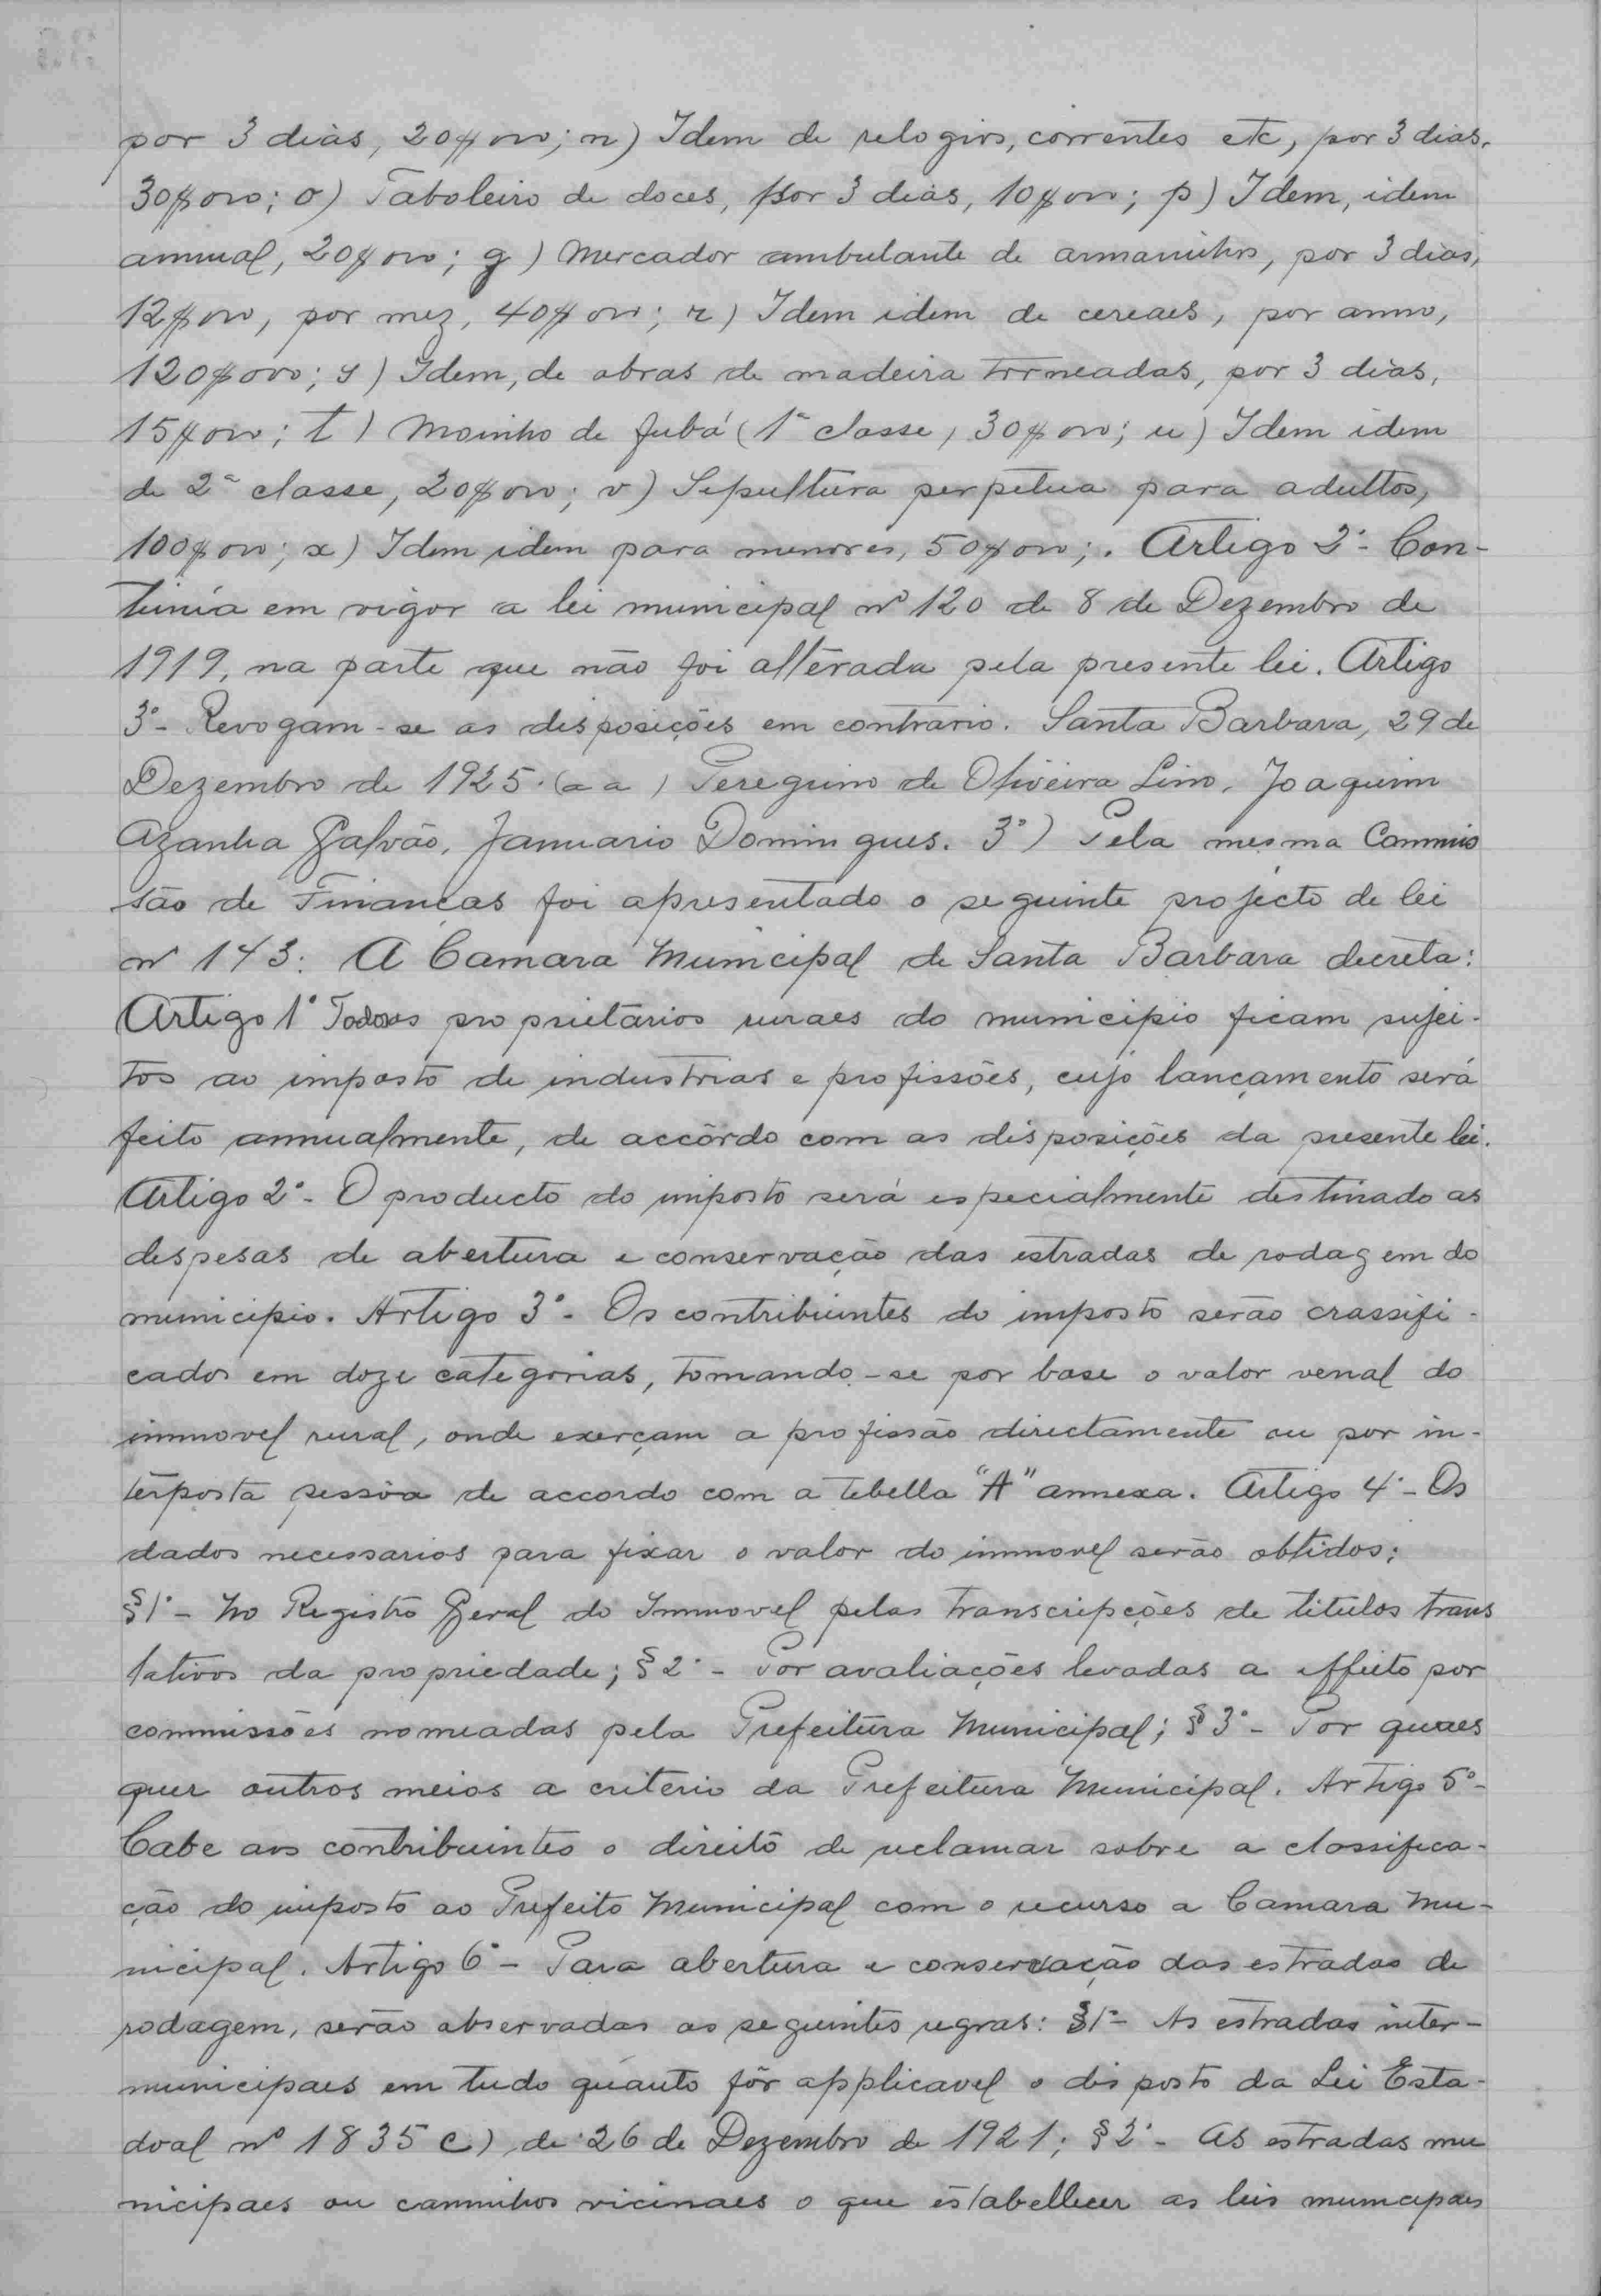 por 3 dias, 20$000; n) Idem de relogios, correntes etc, por 3 dias.
30$000; o) Taboleiro de doces, por 3 dias, 10$000; p) Idem, idem
annual, 20$000; q) Mercador ambulante de armarinhos, por 3 dias,
12$000, por mez, 40$000; r) Idem idem de cereaes, por anno,
120$000; s) Idem, de obras de madeira torneadas, por 3 dias,
15$000; t) Moinho de fubá (1ª classe, 30$000; u) Idem idem
de 2ª classe, 20$000; v) Sepultura perpetua para adultos,
100$000; x) Idem idem para menores, 50$000;. Artigo 2º - Con-
tinúa em vigor a lei municipal nº 120 de 8 de Dezembro de
1919, na parte que não foi alterada pela presente lei. Artigo
3º - Revogam-se as disposições em contrario. Santa Barbara, 29 de
Dezembro de 1925. (a a) Pereguino de Oliveira Lino, Joaquim
Azanha Galvão, Januario Domingues. 3º) Pela mesma Commis
são de Finanças foi apresentado o seguinte projecto de lei
nº 143: A Camara Municipal de Santa Barbara decreta:
Artigo 1º Todos os proprietarios ruraes do municipio ficam sujei-
tos ao imposto de industrias e profissões, cujo lançamento será
feito annualmente, de accôrdo com as disposições da presente lei.
Artigo 2º - O producto do imposto será especialmente destinado as
despesas de abertura e conservação das estradas de rodagem do
municipio. Artigo 3º - Os contribuintes do imposto serão crassifi-
cados em doze categorias, tomando-se por base o valor venal do
immovel rural, onde exerçam a profissão directamente ou por in-
terposta pessôa de accordo com a tebella "A" annexa. Artigo 4º - Os
dados necessarios para fixar o valor do immovel serão obtidos:
§1º - No Registro Geral do Immovel pelas transcripções de titulos trans
lativos da propriedade; §2º - Por avaliações levadas a effeito por
commissões nomeadas pela Prefeitura Municipal; §3º - Por quaes
quer outros meios a criterio da Prefeitura Municipal. Artigo 5º -
Cabe aos contribuintes o direito de reclamar sobre a classifica-
ção do imposto ao Prefeito Municipal com o recurso a Camara Mu-
nicipal. Artigo 6º - Para abertura e conservação das estradas de
rodagem, serão observadas as seguintes regras: §1º - As estradas inter-
municipaes em tudo quanto fôr applicavel o disposto da Lei Esta-
doal nº 1835 C), de 26 de Dezembro de 1921; §2º - As estradas mu
nicipaes ou camminhos vicinaes o que estabellecer as leis municipaes